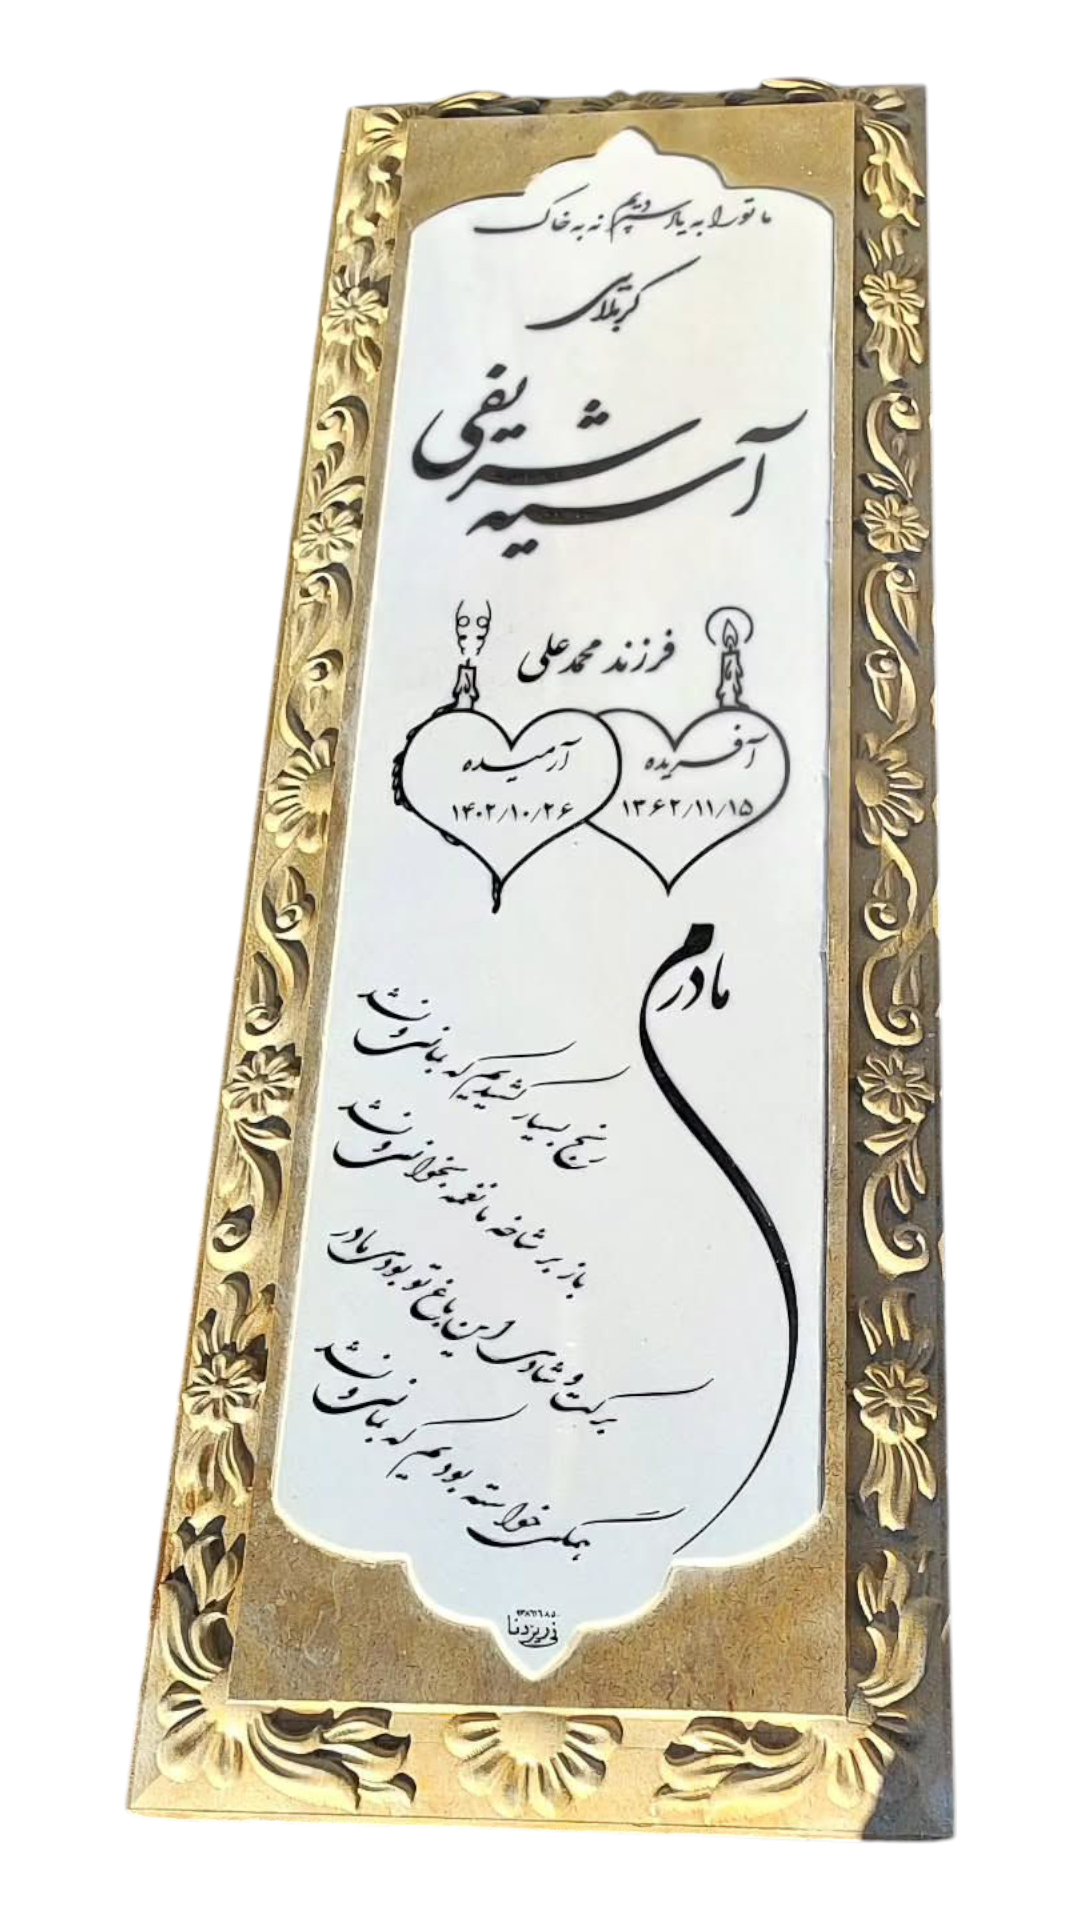 ما تو را به یاد سپردیم نه به خاک
کربلایی
آسیه شریفی
فرزند محمدعلی
آفریده
۱۳۶۲/۱۱/۱۵
آرمیده
۱۴۰۲/۱۰/۲۶
مادرم
رنج بسیار کشیدیم که بمانی و نشد
باز بر شاخه ما نغمه بخوانی و نشد
برکت و شادی این باغ تو بودی مادر
همگی خواسته بودیم که بمانی و نشد
نی ریز دنا